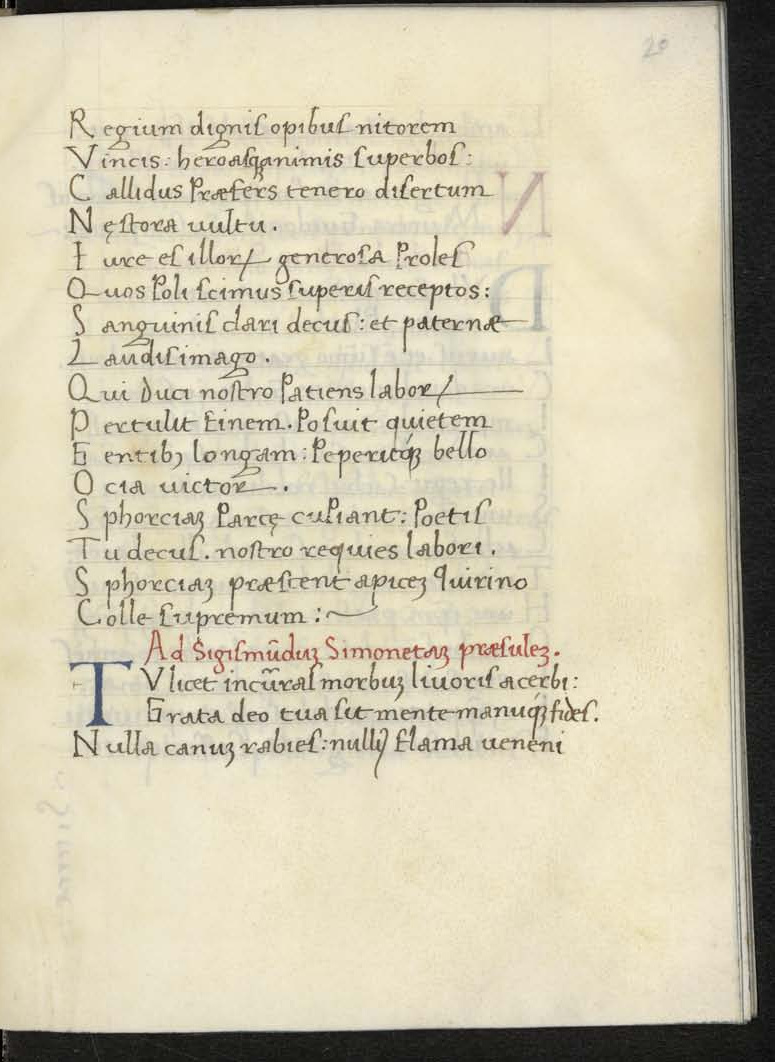 20
Regium dignis opibus nitorem
Vincis: heroasq; animis superbos:
Callidus Præfers tenero disertum
Nęstora uultu.
Iure es illoꝝ generosa Proles
Quos Poli scimus superis receptos:
Sanguinis clari decus: et paternæ
Laudis imago.
Qui Duci nostro Patiens laboꝝ
Pertulit Finem. Posuit quietem
Gentibꝫ longam: Peperitqꝫ bello
Ocia uictor.
Sphorciaꝫ Parcę cupiant: Poetis
Tu decus. nostro requies labori.
Sphorciaꝫ præstent apiceꝫ Quirino
Colle supremum:~
Ad Sigismūduꝫ Simonetaꝫ præsuleꝫ.
TV licet incūras morbuꝫ liuoris acerbi:
Grata deo tua sit mente manuqꝫ fides.
Nulla canuꝫ rabies: nullꝰ flama ueneni